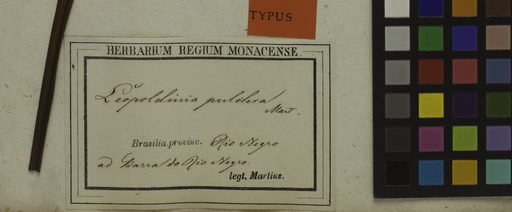 TYPUS
HERBARIUM REGIUM MONACENSE.
Leopoldinia pulchra
Mart.
Brasilia provinc. Rio Negro
ad Barra do Rio Negro.
legt. Martius.